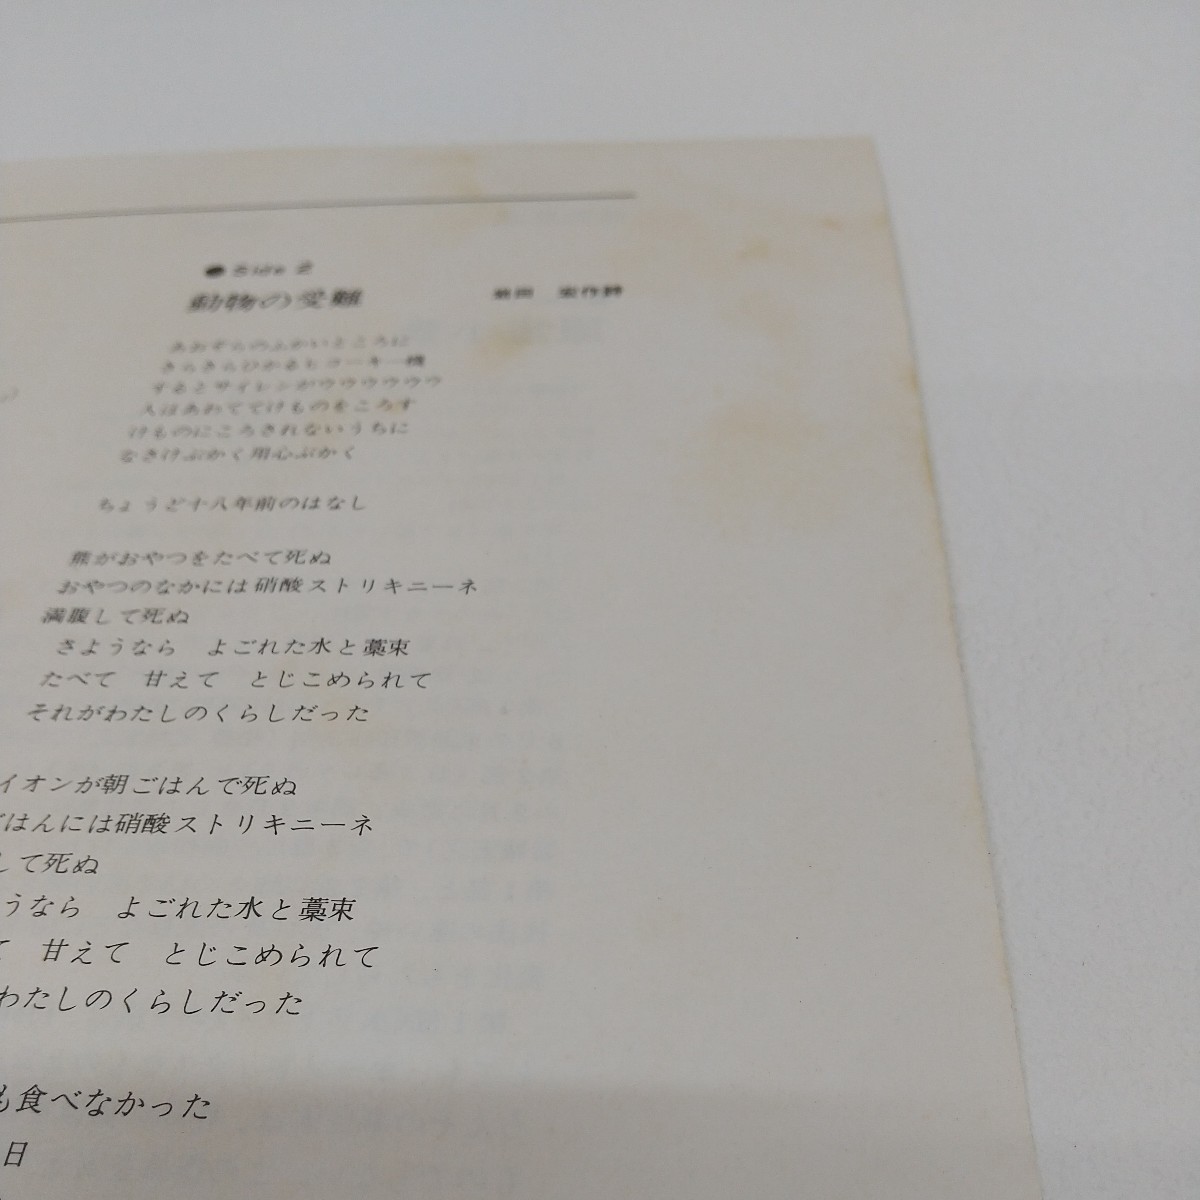 ● Side 2
動物の受難　岩田　宏作詩
あおぞらのふかいところに
きらきらひかるヒコーキ一機
するとサイレンがウウウウウウ
人はあわててけものをころす
けものにころされないうちに
なさけぶかく用心ぶかく
ちょうど十八年前のはなし
熊がおやつをたべて死ぬ
おやつのなかには硝酸ストリキニーネ
満腹して死ぬ
さようなら　よごれた水と藁束
たべて　甘えて　とじこめられて
それがわたしのくらしだった
イオンが朝ごはんで死ぬ
ごはんには硝酸ストリキニーネ
して死ぬ
うなら　よごれた水と藁束
て　甘えて　とじこめられて
わたしのくらしだった
も食べなかった
日